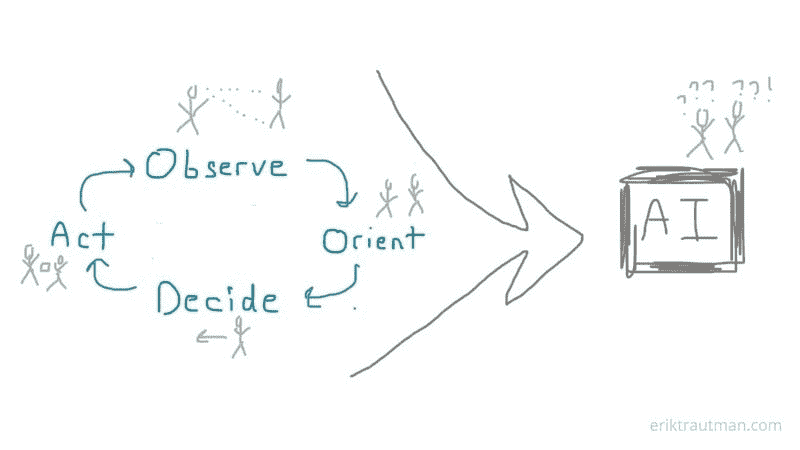 Observe
Orient
Decide
Act
??? ??!
?
AI
eriktrautman.com